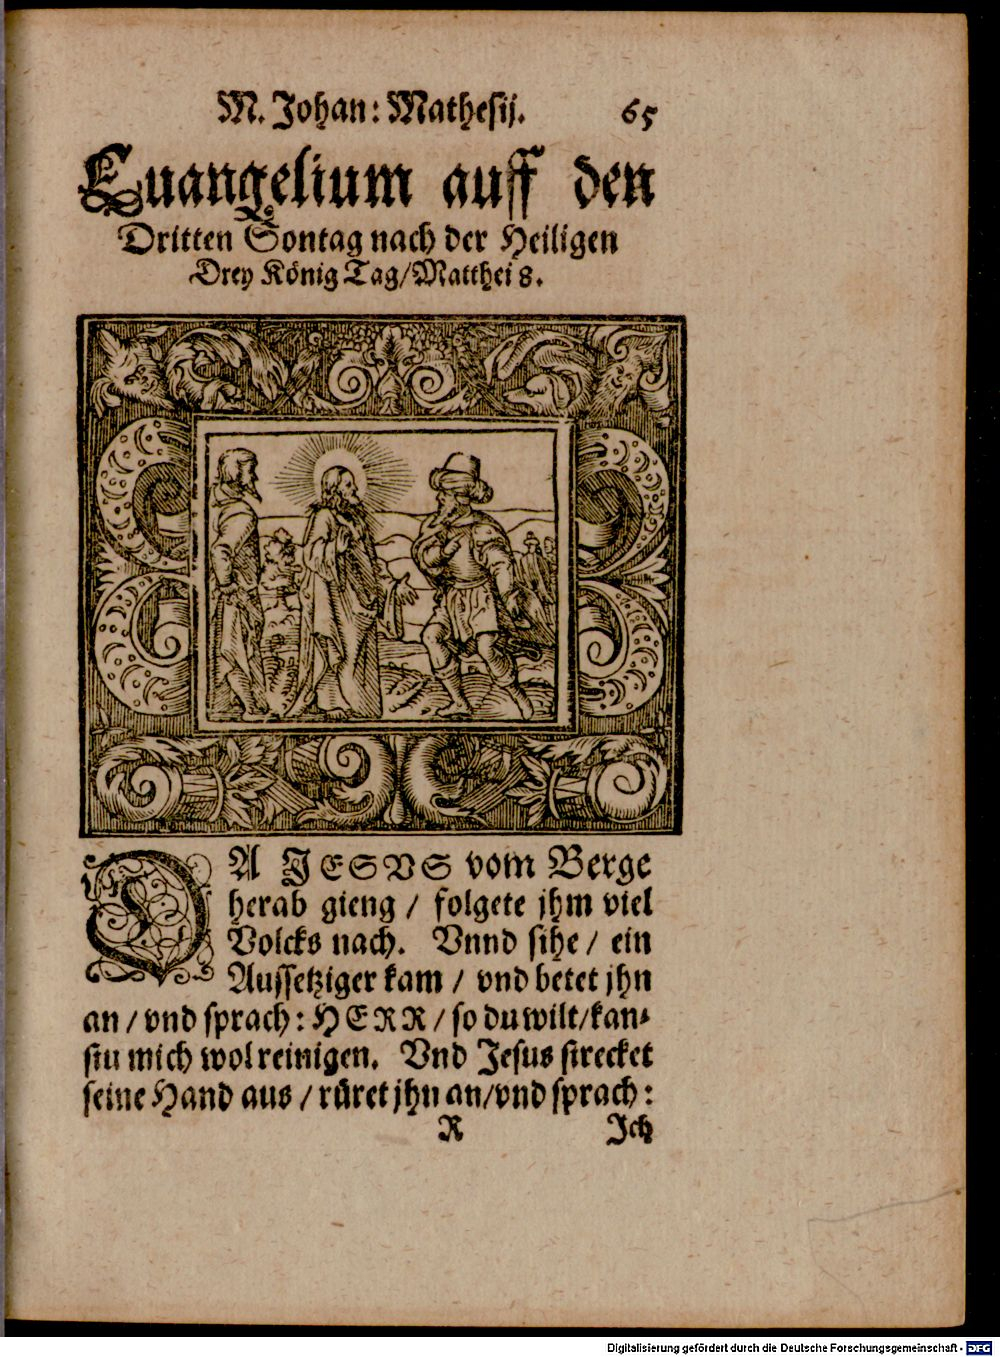 M. Johan: Mathesij. 65
Euangelium auff den
Dritten Sontag nach der Heiligen
Drey König Tag/Matthei 8.
DA JESVS vom Berge
herab gieng / folgete jhm viel
Volcks nach. Vnnd sihe / ein
Aussetziger kam / vnd betet jhn
an / vnd sprach: HERR / so du wilt/kan-
stu mich wol reinigen. Vnd Jesus strecket
seine Hand aus / rüret jhn an/vnd sprach:
R Ich
Digitalisierung gefördert durch die Deutsche Forschungsgemeinschaft - DFG